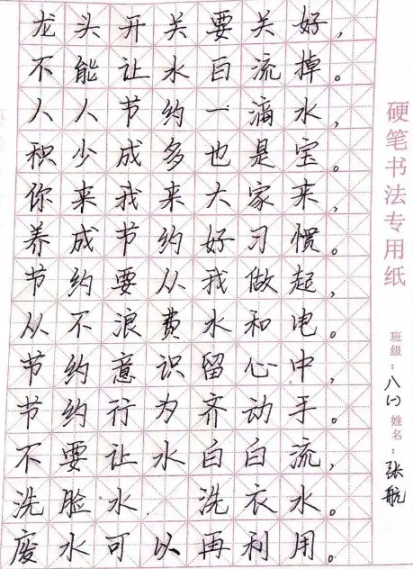 龙头开关要关好，
不能让水白流掉。
人人节约一滴水，
积少成多也是宝。
你来我来大家来，
养成节约好习惯。
节约要从我做起，
从不浪费水和电。
节约意识留心中，
节约行为齐动手。
不要让水白白流，
洗脸水 洗衣水。
废水可以再利用。
硬笔书法专用纸
班级：八(2) 姓名：张航